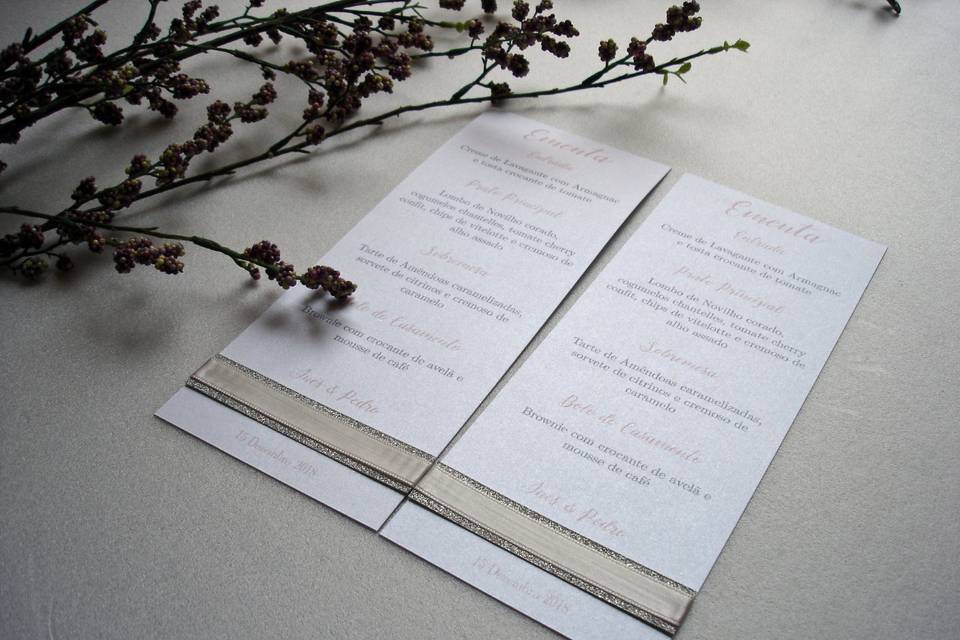 Ementa
Entrada
Creme de Lavagante com Armagnac
e tosta crocante de tomate
Prato Principal
Lombo de Novilho corado,
cogumelos chantelles, tomate cherry
confit, chips de vitelotte e cremoso de
alho assado
Sobremesa
Tarte de Amêndoas caramelizadas,
sorvete de citrinos e cremoso de
caramelo
Bolo de Casamento
Brownie com crocante de avelã e
mousse de café
Inês & Pedro
15 Dezembro 2018
Ementa
Entrada
Creme de Lavagante com Armagnac
e tosta crocante de tomate
Prato Principal
Lombo de Novilho corado,
cogumelos chantelles, tomate cherry
confit, chips de vitelotte e cremoso de
alho assado
Sobremesa
Tarte de Amêndoas caramelizadas,
sorvete de citrinos e cremoso de
caramelo
Bolo de Casamento
Brownie com crocante de avelã e
mousse de café
Inês & Pedro
15 Dezembro 2018